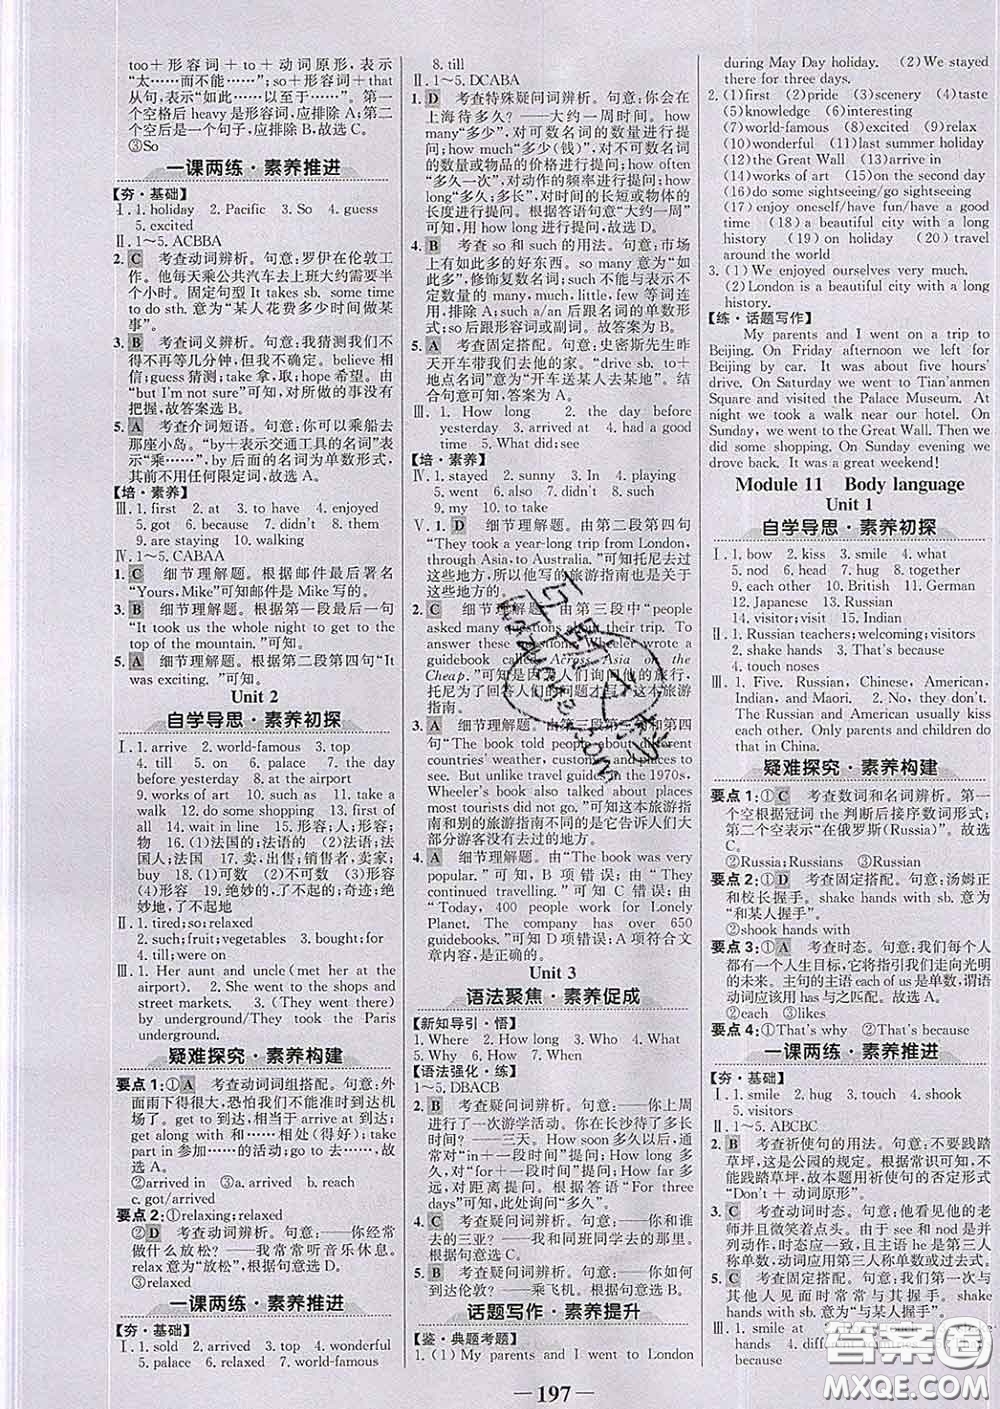 too＋形容词＋to＋动词原形，表示
“太……而不能……”；so＋形容词＋that
从句，表示“如此……以至于……”。第一
个空格后 heavy 是形容词，应排除 A；第二
个空后是一个句子，应排除 B，故选 C。
③So
一课两练·素养推进
【夯·基础】
Ⅰ. 1. holiday 2. Pacific 3. So 4. guess
5. excited
Ⅱ. 1～5. ACBBA
2. C 考查动词辨析。句意：罗伊在伦敦工
作。他每天乘公共汽车去上班大约需要半
个小时。固定句型 It takes sb. some time
to do sth. 意为“某人花费多少时间做某
事”。
3. B 考查词义辨析。句意：我猜测我们不
得不再等几分钟，但我不确定。believe 相
信；guess 猜测；take 拿，取；hope 希望。由
“but I'm not sure”可知，对所做的事没有
把握，故答案选 B。
5. A 考查介词短语。句意：你可以乘船去
那座小岛。“by＋表示交通工具的名词”表
示“乘……”，by 后面的名词为单数形式，
其前不用任何限定词，故选 A。
【培·素养】
Ⅲ. 1. first 2. at 3. to 4. have 5. enjoyed
5. got 6. because 7. didn't 8. them
9. are staying 10. walking
Ⅳ. 1～5. CABAA
1. C 细节理解题。根据邮件最后署名
“Yours, Mike”可知邮件是 Mike 写的。
3. B 细节理解题。根据第一段最后一句
“It took us the whole night to get to the
top of the mountain. ”可知。
5. A 细节理解题。根据第二段第四句“It
was exciting. ”可知。
Unit 2
自学导思·素养初探
Ⅰ. 1. arrive 2. world-famous 3. top
4. till 5. on 6. palace 7. the day
before yesterday 8. at the airport
9. works of art 10. such as 11. take a
walk 12. do some shopping 13. first of
all 14. wait in line 15. 形容；人；形容；
物 16. 法国的；法语的 (2)法语；法
国人；法国 17. 卖，出售；销售，卖家；
buy 18. (1)可数 (2)不可数 (3)形容
(4)形容 19. 绝妙的，了不起的；奇迹；绝
妙地，了不起地
Ⅱ. 1. tired; so; relaxed
2. such; fruit; vegetables 3. bought; for
4. till; were on
Ⅲ. 1. Her aunt and uncle (met her at the
airport). 2. She went to the shops and
street markets. 3. (They went there)
by underground/They took the Paris
underground.
疑难探究·素养构建
要点 1：①A 考查动词词组搭配。句意：外
面雨下得很大，恐怕我们不能准时到达机
场了。get to 到达，得到；arrive at 到达；
get along with……相处（得好）；take
part in 参加……的活动；go to 去……，故
选 A。
②arrived in ③a. arrived b. reach
c. got/arrived
要点 2：①relaxing; relaxed
②D 考查动词辨析。句意：——你经常
做什么放松？——我常常听音乐休息。
relax 意为“放松”，结合句意可知，故选 D。
③relaxed
一课两练·素养推进
【夯·基础】
Ⅰ. 1. sold 2. arrived 3. top 4. wonderful
5. palace 6. relaxed 7. world-famous
8. till
Ⅱ. 1～5. DCABA
1. D 考查特殊疑问词辨析。句意：你会在
上海待多久？——大约一周时间。how
many“多少”，对可数名词的数量进行提
问；how much“多少（钱）”，对不可数名
词的数量或物品的价格进行提问；how often
“多久一次”，对动作的频率进行提问；how
long“多久；多长”，对时间的长短或物体的
长度进行提问。根据答语句意“大约一周”
可知，用 how long 进行提问，故选 D。
4. B 考查 so 和 such 的用法。句意：市场
上有如此多的好东西。so many 意为“如
此多的”，修饰复数名词；such 不能与表示
不定数量的 many, much, little, few 等词连
用，排除 C；such a/an 后跟名词的单数形
式；so 后跟形容词或副词。故答案选 B。
5. A 考查固定搭配。句意：史密斯先生昨
天开车带我们去他的家。“drive sb. to＋
地点名词”意为“开车送某人去某地”。
结合句意可知，答案为 A。
Ⅲ. 1. How long 2. the day before
yesterday 3. arrived at 4. had a good
time 5. What did; see
【培·素养】
Ⅳ. 1. stayed 2. sunny 3. In 4. playing
5. went 6. also 7. didn't 8. to
9. bought 10. because
Ⅴ. 1. D 细节理解题。由第二段第四句
“They took a year-long trip from London,
through Asia, to Australia. ”可知托尼去过
这些地方，所以他写的旅游指南也是关于
这些地方的。
2. C 细节理解题。由第三段中“people
asked many questions about their trip. To
answer these questions, Wheeler wrote a
guidebook called Across Asia on the
Cheap. ”可知是因为人们询问他的旅行，
托尼为了回答人们的问题才写这本旅游
指南。
3. A 细节理解题。由第三段第三句和第四
句“The book told people about different
countries' weather, customs and places to
see. But unlike travel guides in the 1970s,
Wheeler's book also talked about places
most tourists did not go. ”可知这本旅游指
南和别的旅游指南不同是：它告诉人们大
部分游客没有去过的地方。
4. A 细节理解题。由“The book was very
popular. ”可知，B 项错误；由“They
continued travelling. ”可知 C 错误；由
“Today, 400 people work for Lonely
Planet. The company has over 650
guidebooks. ”可知 D 项错误；A 项符合文
章内容，是正确的。
Unit 3
语法聚焦·素养促成
【新知导引·悟】
1. Where 2. How long 3. Who 4. What
5. Why 6. How 7. When
【语法强化·练】
1～5. DBACB
2. B 考查疑问词辨析。句意：——你上周
进行了一次游学活动。你在长沙待了多长
时间？——三天。How soon 多久以后，用
于“in＋一段时间”提问；How long 多长
时间，用于“for＋一段时间”提问；How far
多远，对距离提问。根据答语“For three
days”可知，此处询问“多久”。
4. C 考查疑问词辨析。句意：——你和谁
去的三亚？——我和同班同学去的那里。
根据句意选 C。
5. B 考查疑问词辨析。句意：——你如何
到达伦敦？——我乘飞机。根据句意选 B。
话题写作·素养提升
【鉴·典题考题】
1. (1) My parents and I went to London
during May Day holiday. (2)We stayed
there for three days.
2. (1)first (2)pride (3)scenery (4)taste
(5)knowledge (6)interesting
(7)world-famous (8)excited (9)relax
(10)wonderful (11)last summer holiday
(12)the Great Wall (13)arrive in
(14)works of art (15)on the second day
(16)do some sightseeing/go sightseeing
(17)enjoy oneself/have fun/have a good
time (18) a beautiful city with a long
history (19) on holiday (20) travel
around the world
3. (1)We enjoyed ourselves very much.
(2)London is a beautiful city with a long
history.
【练·话题写作】
My parents and I went on a trip to
Beijing. On Friday afternoon we left for
Beijing by car. It was about five hours'
drive. On Saturday we went to Tian'anmen
Square and visited the Palace Museum. At
night we took a walk near our hotel. On
Sunday, we went to the Great Wall. Then we
did some shopping. On Sunday evening we
drove back. It was a great weekend!
Module 11 Body language
Unit 1
自学导思·素养初探
Ⅰ. 1. bow 2. kiss 3. smile 4. what
5. nod 6. head 7. hug 8. together
9. each other 10. British 11. German
12. Japanese 13. Russian
14. visitor; visit 15. Indian
Ⅱ. 1. Russian teachers; welcoming; visitors
2. shake hands 3. That's because
4. touch noses
Ⅲ. 1. Five. Russian, Chinese, American,
Indian, and Maori. 2. No, they don't.
The Russian and American usually kiss
each other. Only parents and children do
that in China.
疑难探究·素养构建
要点 1：①C 考查数词和名词辨析。第一
个空根据冠词 the 判断后接序数词形式；
第二个空表示“在俄罗斯(Russia)”。故选
C。
②Russia; Russians ③Russian
要点 2：①D 考查固定搭配。句意：汤姆正
和校长握手。shake hands with sb. 意为
“和某人握手”。
②shook hands with
要点 3：①A 考查时态。句意：我们每个人
都有一个人生目标，它将带我们走向光明
的未来。主句的主语 each of us 是单数，谓语
动词应该用 has 与之匹配。故选 A。
②each ③likes
要点 4：①That's why ②That's because
一课两练·素养推进
【夯·基础】
Ⅰ. 1. smile 2. hug 3. touch 4. shook
5. visitors
Ⅱ. 1～5. ABCBC
2. B 考查祈使句的用法。句意：不要践踏
草坪，这是公园的规定。根据常识可知，不
能践踏草坪，故本题用祈使句的否定形式
“Don't ＋ 动词原形”。
3. C 考查动词时态。句意：他看见他的老
师并且微笑着点头。由于 see 和 nod 是并
列动作，时态应一致，且主语 he 是第三人
称单数，动词应用第三人称单数形式。
5. C 考查固定搭配。句意：我们第一次与
其他人见面时常常与其握手。shake
hands with sb. 意为“与某人握手”。
Ⅲ. 1. smile at
because
— 197 —
答案圈
MXQE.COM